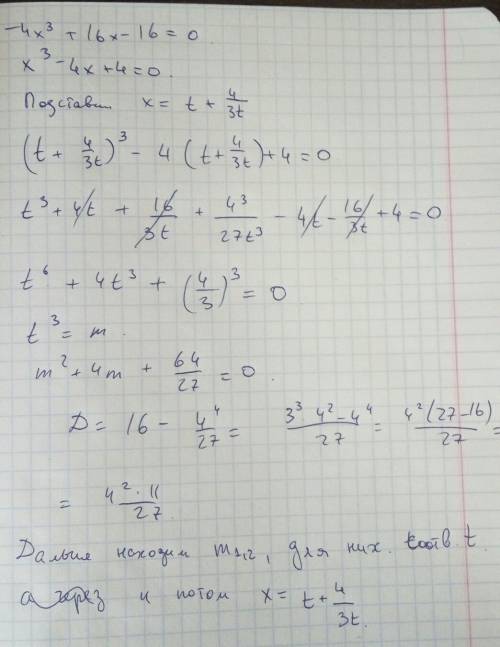 -4x³ + 16x - 16 = 0
x³ - 4x + 4 = 0.
Подставим x = t + 4/3t
(t + 4/3t)³ - 4 (t + 4/3t) + 4 = 0
t³ + 4t + 16/3t + 4³/27t³ - 4t - 16/3t + 4 = 0
t⁶ + 4t³ + (4/3)³ = 0
t³ = m.
m² + 4m + 64/27 = 0.
D = 16 - 4⁴/27 = 3³ 4² - 4⁴/27 = 4² (27 - 16)/27 =
= 4² · 11/27
Дальше находим m₁,₂, для них t.
а через и потом x = t + 4/3t.